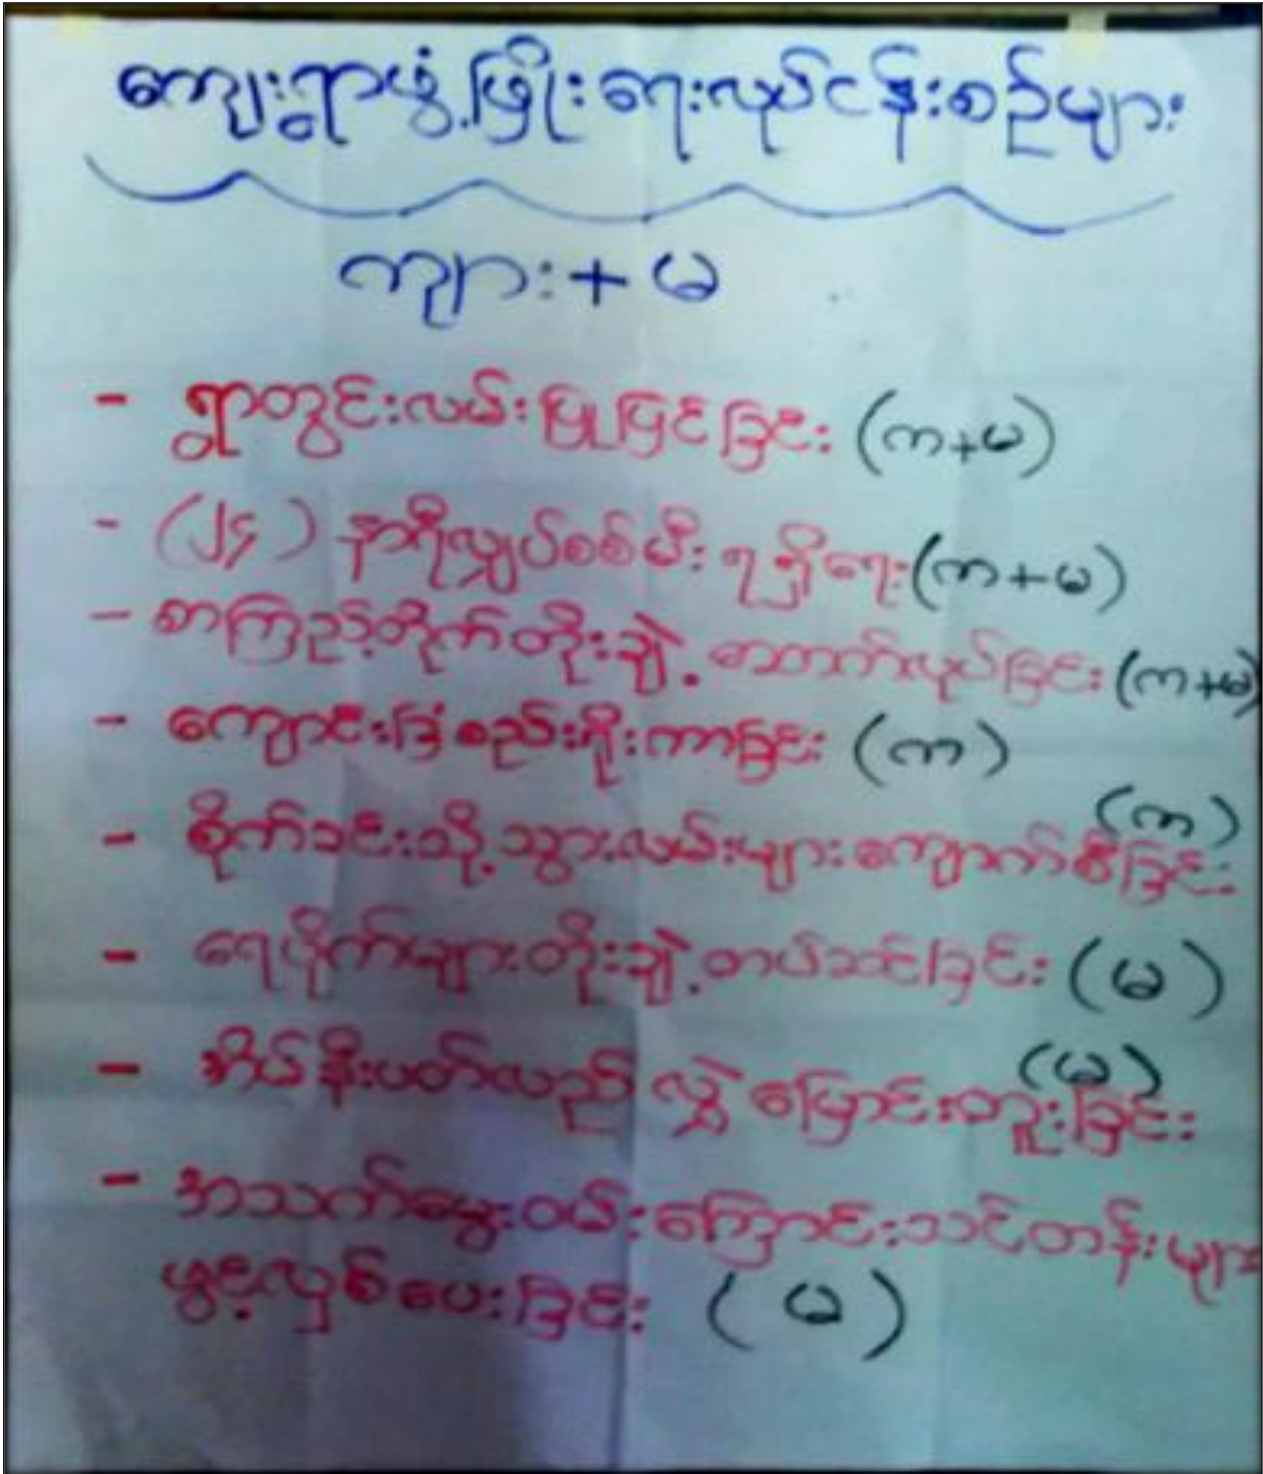 ကျေးရွာဖွံ့ဖြိုးရေးလုပ်ငန်းစဉ်များ
ကျား+မ
- ရွာတွင်းလမ်းပြုပြင်ခြင်း (က+မ)
- (၂၄) နာရီလျှပ်စစ်မီးရရှိရေး (က+မ)
- စာကြည့်တိုက်တိုးချဲ့ဆောက်လုပ်ခြင်း (က+မ)
- ကျောင်းခြံစည်းရိုးကာခြင်း (က)
- စိုက်ခင်းသို့သွားလမ်းများကျောက်စီခြင်း (က)
- ရေပိုက်များတိုးချဲ့တပ်ဆင်ခြင်း (မ)
- အိမ်နီးပတ်လည် လွှဲပြောင်းဘူးခြင်း (မ)
- အသက်မွေးဝမ်းကြောင်းသင်တန်းများ
ဖွင့်လှစ်ပေးခြင်း (မ)